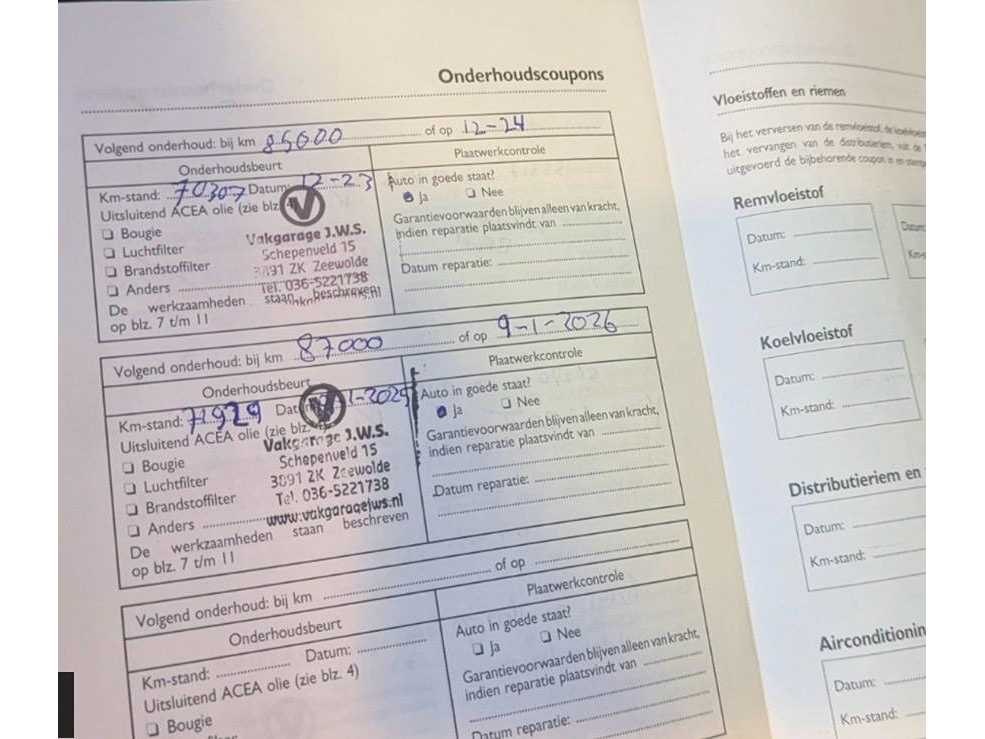 Onderhoudscoupons
Volgend onderhoud: bij km 85000 of op 12-24
Onderhoudsbeurt
Plaatwerkcontrole
Km-stand: 70307 Datum: 12-23
Auto in goede staat?
Ja Nee
Uitsluitend ACEA olie (zie blz. 4)
Bougie
Luchtfilter
Brandstoffilter
Anders
De werkzaamheden staan beschreven
op blz. 7 t/m 11
Vakgarage J.W.S.
Schepenveld 15
3891 ZK Zeewolde
Tel. 036-5221738
Garantievoorwaarden blijven alleen van kracht,
indien reparatie plaatsvindt van
Datum reparatie:
Volgend onderhoud: bij km 87000 of op 9-1-2026
Onderhoudsbeurt
Plaatwerkcontrole
Km-stand: 71929 Datum: -2025
Auto in goede staat?
Ja Nee
Uitsluitend ACEA olie (zie blz.
Bougie
Luchtfilter
Brandstoffilter
Anders
De werkzaamheden staan beschreven
op blz. 7 t/m 11
Vakgarage J.W.S.
Schepenveld 15
3891 ZK Zeewolde
Tel. 036-5221738
www.vakgaragejws.nl
Garantievoorwaarden blijven alleen van kracht,
indien reparatie plaatsvindt van
Datum reparatie:
Volgend onderhoud: bij km of op
Onderhoudsbeurt
Plaatwerkcontrole
Km-stand: Datum:
Auto in goede staat?
Ja Nee
Uitsluitend ACEA olie (zie blz. 4)
Bougie
Garantievoorwaarden blijven alleen van kracht,
indien reparatie plaatsvindt van
Datum reparatie:
Vloeistoffen en riemen
Bij het verversen van de remvloeistof, de koelvloeistof
het vervangen van de distributieriem,
uitgevoerd de bijbehorende coupon
Remvloeistof
Datum:
Km-stand:
Koelvloeistof
Datum:
Km-stand:
Distributieriem en
Datum:
Km-stand:
Airconditionin
Datum:
Km-stand: